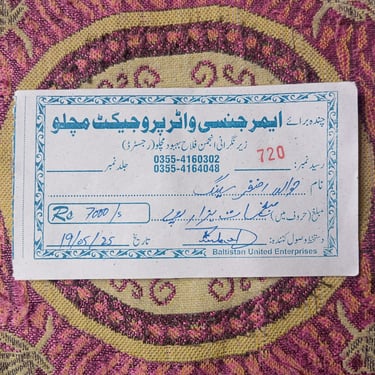 چندہ برائے ایمرجنسی واٹر پروجیکٹ مچلو
زیر نگرانی انجمن فلاح بہبود مچلو (رجسٹرڈ)
رسید نمبر: 720 0355-4160302
0355-4164048 جلد نمبر
نام
مبلغ (حروف میں) سات ہزار روپے Rs 7000/s
دستخط وصول کنندہ: تاریخ 19/05/25
Baltistan United Enterprises